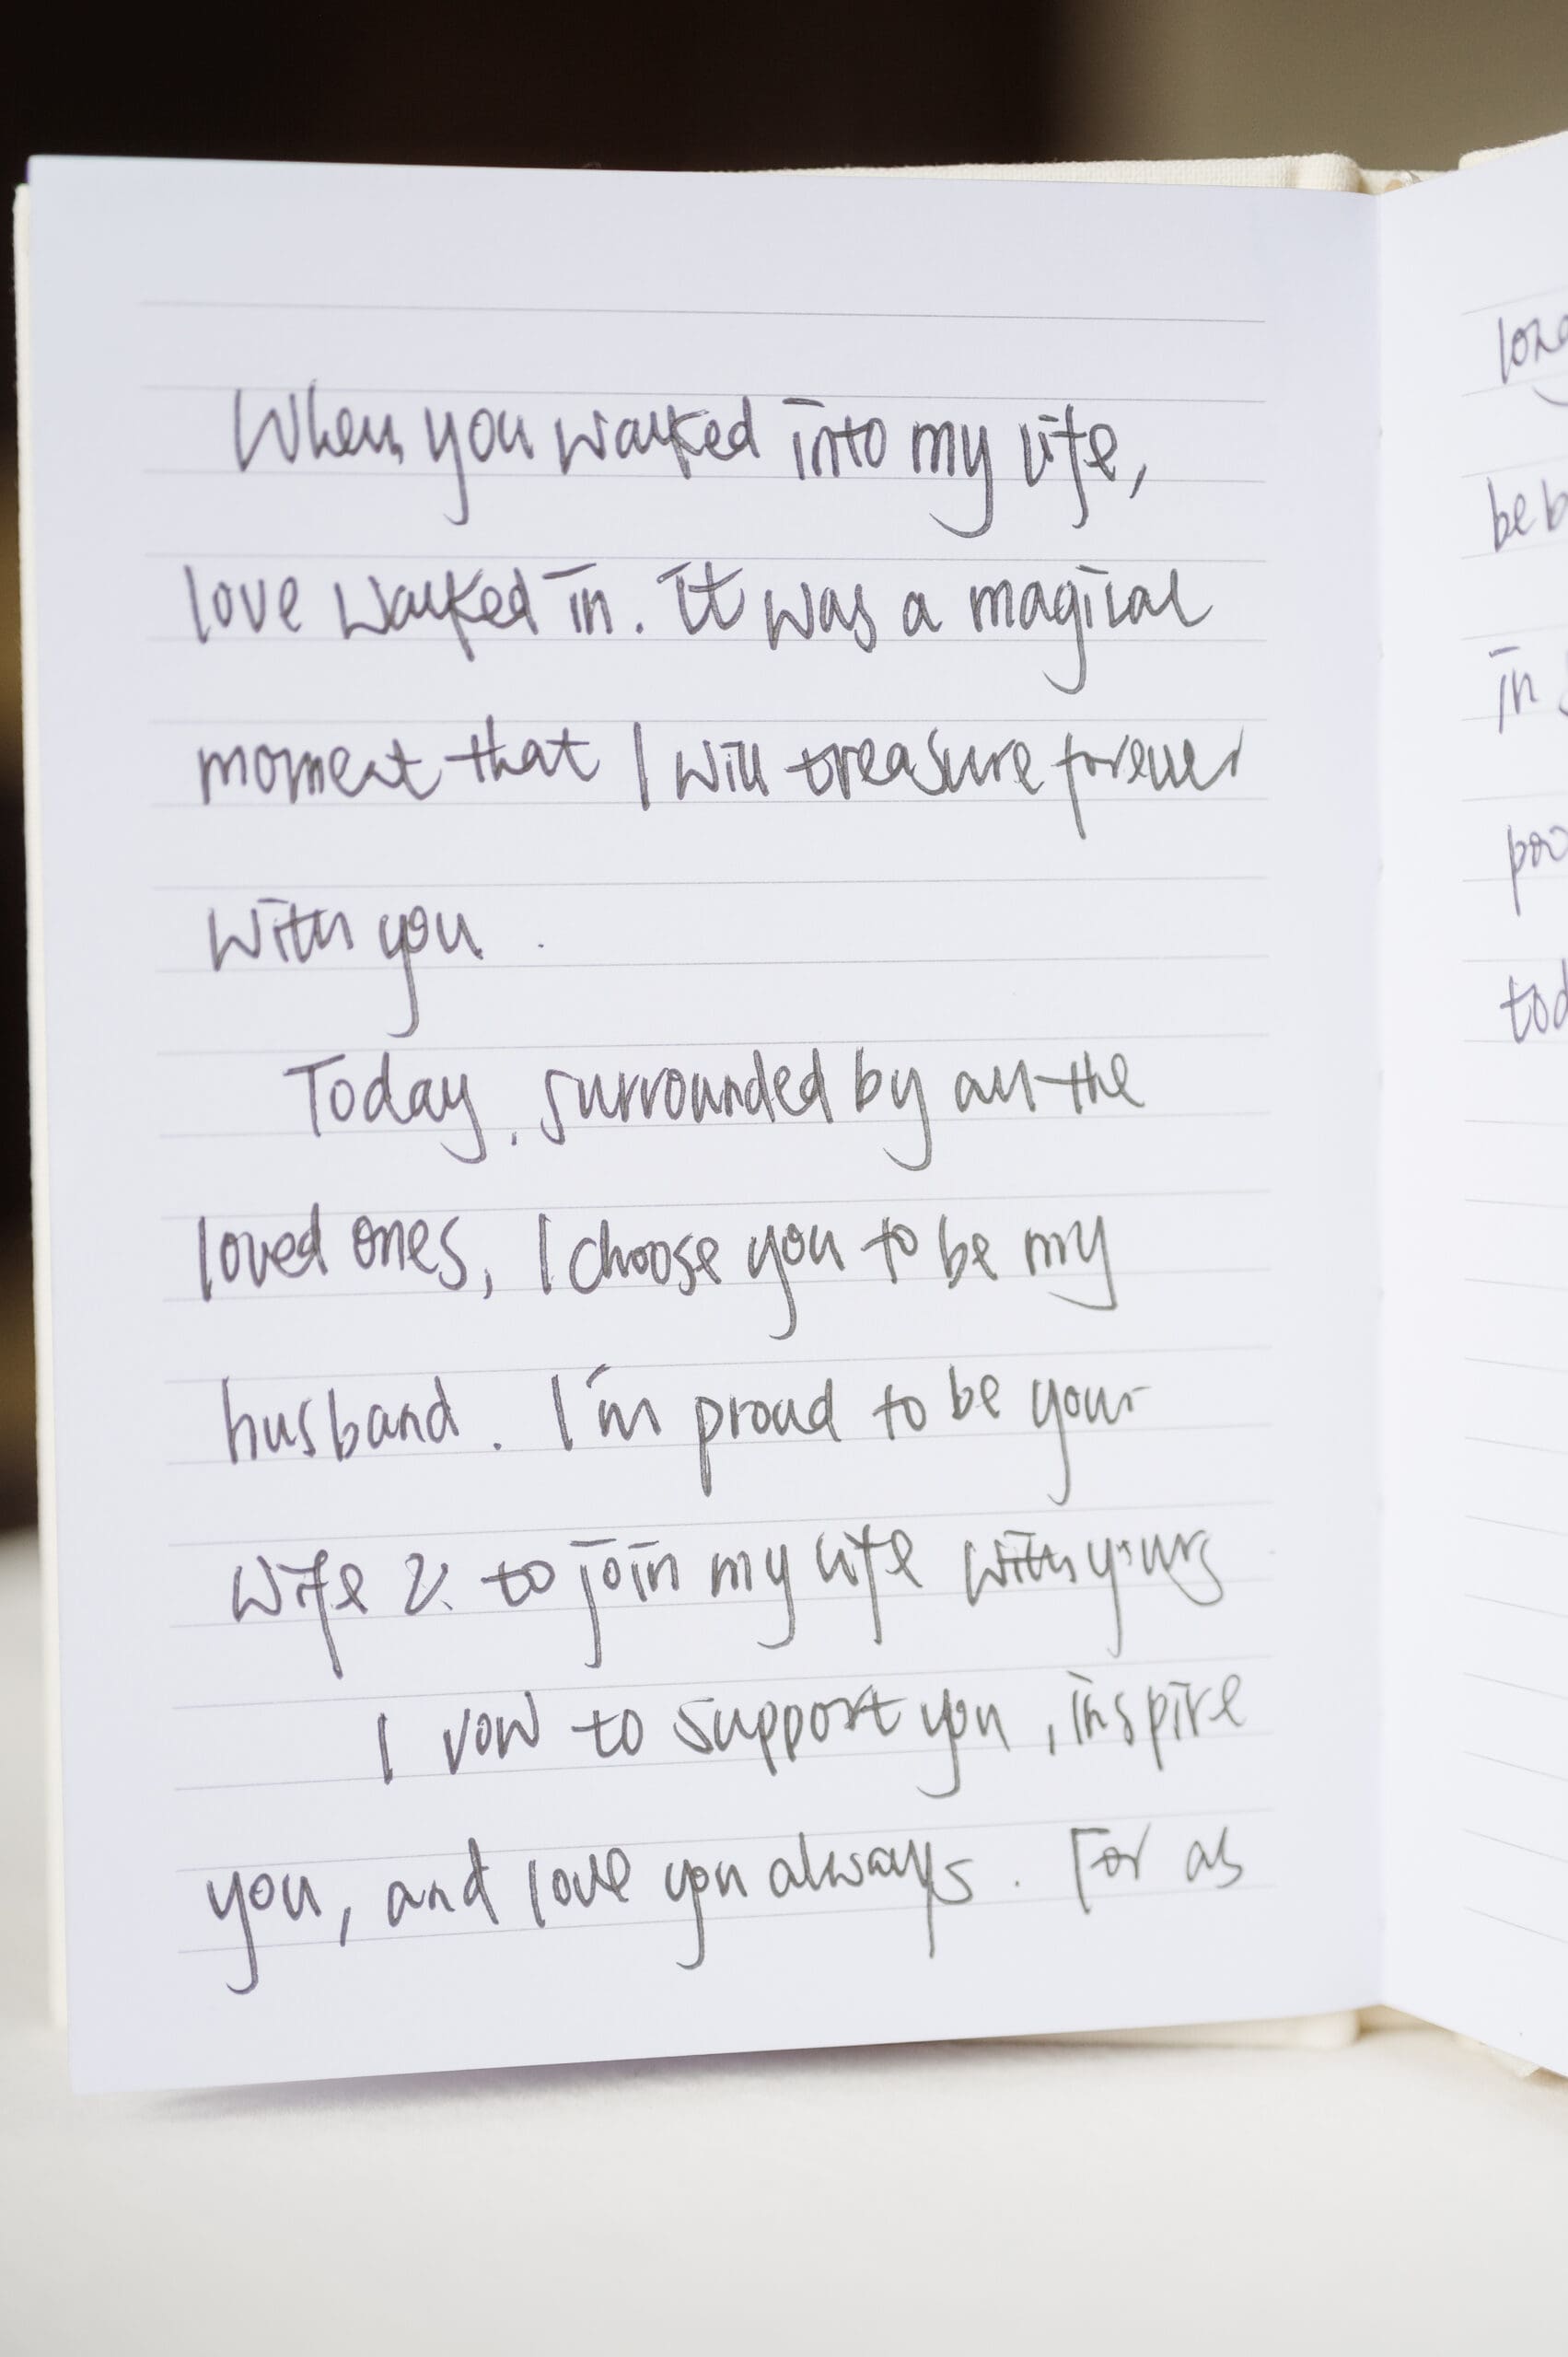 When you walked into my life,
love walked in. It was a magical
moment that I will treasure forever
with you.
Today, surrounded by all the
loved ones, I choose you to be my
husband. I'm proud to be your
wife & to join my life with yours
I vow to support you, inspire
you, and love you always. For as
in